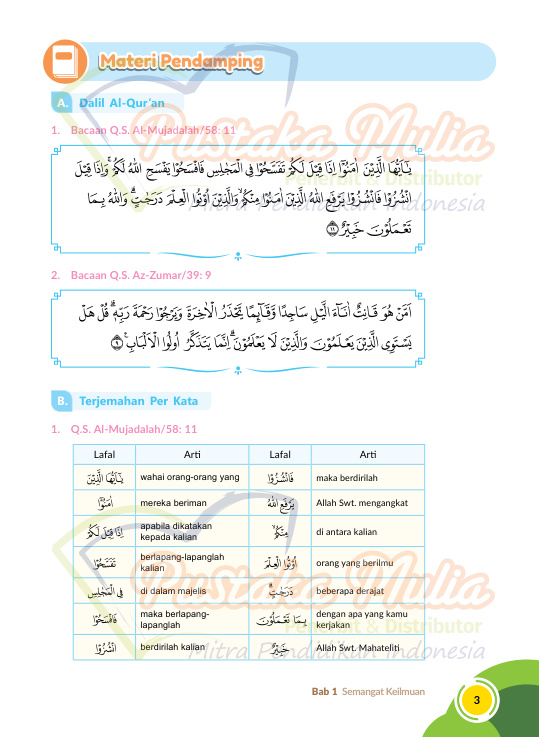 Materi Pendamping
A. Dalil Al-Qur'an
1. Bacaan Q.S. Al-Mujadalah/58: 11
يٰٓاَيُّهَا الَّذِيْنَ اٰمَنُوْٓا اِذَا قِيْلَ لَكُمْ تَفَسَّحُوْا فِى الْمَجٰلِسِ فَافْسَحُوْا يَفْسَحِ اللّٰهُ لَكُمْۚ وَاِذَا قِيْلَ
انْشُزُوْا فَانْشُزُوْا يَرْفَعِ اللّٰهُ الَّذِيْنَ اٰمَنُوْا مِنْكُمْۙ وَالَّذِيْنَ اُوْتُوا الْعِلْمَ دَرَجٰتٍۗ وَاللّٰهُ بِمَا
تَعْمَلُوْنَ خَبِيْرٌ ۝١١
2. Bacaan Q.S. Az-Zumar/39: 9
اَمَّنْ هُوَ قَانِتٌ اٰنَاۤءَ الَّيْلِ سَاجِدًا وَّقَاۤىِٕمًا يَّحْذَرُ الْاٰخِرَةَ وَيَرْجُوْا رَحْمَةَ رَبِّهٖۗ قُلْ هَلْ
يَسْتَوِى الَّذِيْنَ يَعْلَمُوْنَ وَالَّذِيْنَ لَا يَعْلَمُوْنَۗ اِنَّمَا يَتَذَكَّرُ اُولُوا الْاَلْبَابِ ۝٩
B. Terjemahan Per Kata
1. Q.S. Al-Mujadalah/58: 11
Lafal Arti Lafal Arti
يٰٓاَيُّهَا الَّذِيْنَ wahai orang-orang yang فَانْشُزُوْا maka berdirilah
اٰمَنُوْٓا mereka beriman يَرْفَعِ اللّٰهُ Allah Swt. mengangkat
اِذَا قِيْلَ لَكُمْ apabila dikatakan kepada kalian مِنْكُمْۙ di antara kalian
تَفَسَّحُوْا berlapang-lapanglah kalian اُوْتُوا الْعِلْمَ orang yang berilmu
فِى الْمَجٰلِسِ di dalam majelis دَرَجٰتٍۗ beberapa derajat
فَافْسَحُوْا maka berlapang-lapanglah بِمَا تَعْمَلُوْنَ dengan apa yang kamu kerjakan
انْشُزُوْا berdirilah kalian خَبِيْرٌ Allah Swt. Mahateliti
Bab 1 Semangat Keilmuan
3
Pustaka Mulia
Penerbit & Distributor
Mitra Pendidikan Indonesia
Pustaka Mulia
Penerbit & Distributor
Mitra Pendidikan Indonesia